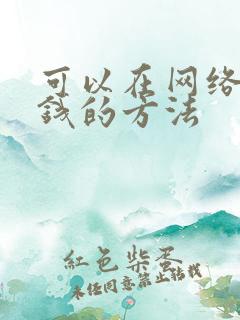 可以在网络
钱的方法
紅色柴蛋
未经同意禁止转载